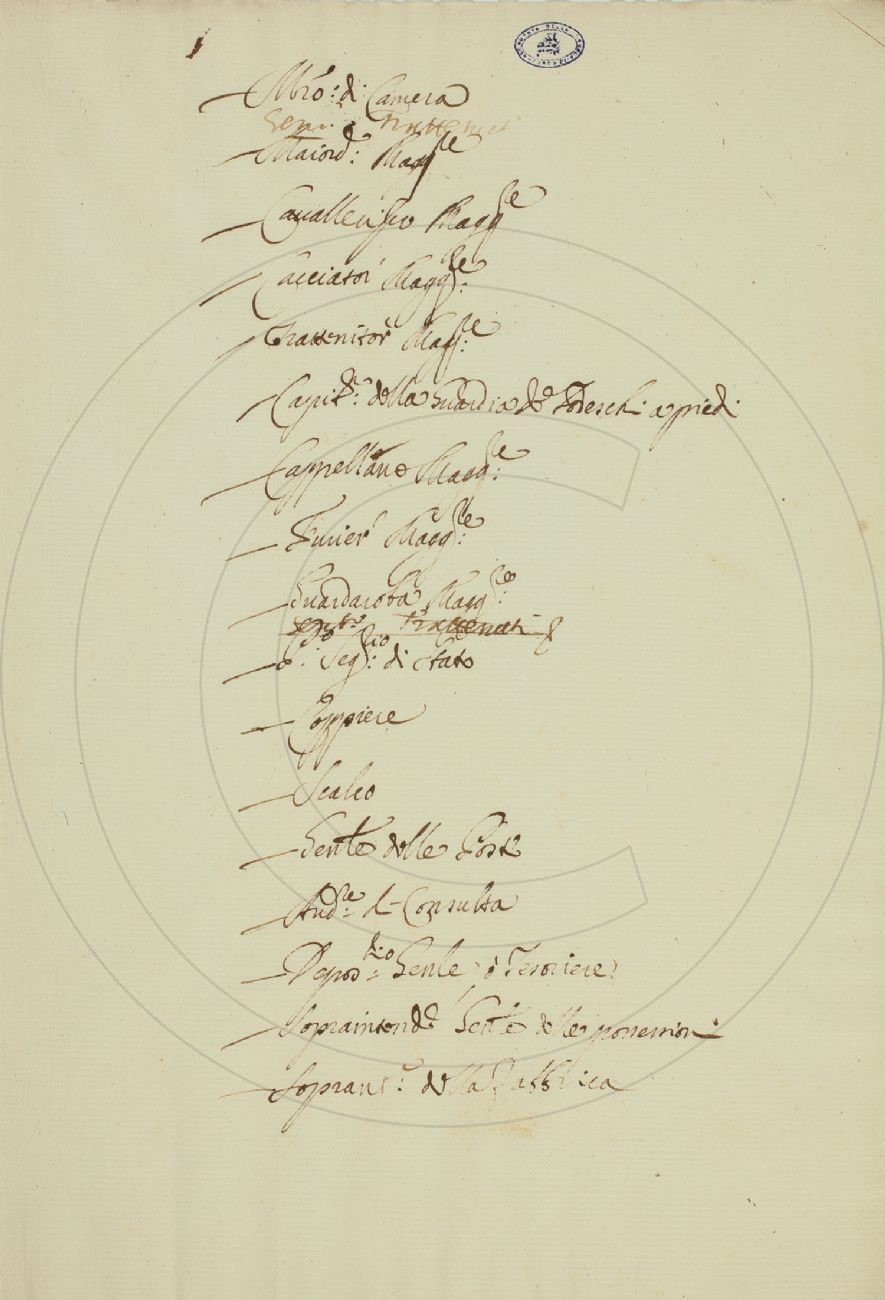 Mro: di Camera
Maiord: Magg.re
Cavallerizzo Magg.re
Cacciator Magg.re:
Trattenitor Magg.re:
Capit.o: della Guardia de Todeschi a piedi
Cappellano Magg.re:
Furier Magg.re:
Guardaroba Magg.re:
Trattenuti
p.o: Seg.rio: di Stato
Coppiere
Scalco
Gen.le delle Poste
Aud.re di Consulta
Depos.rio Gen.le o Tesoriere
Sopraintend.e Gen.le delle possessioni
Sopran.te: della Fabbrica